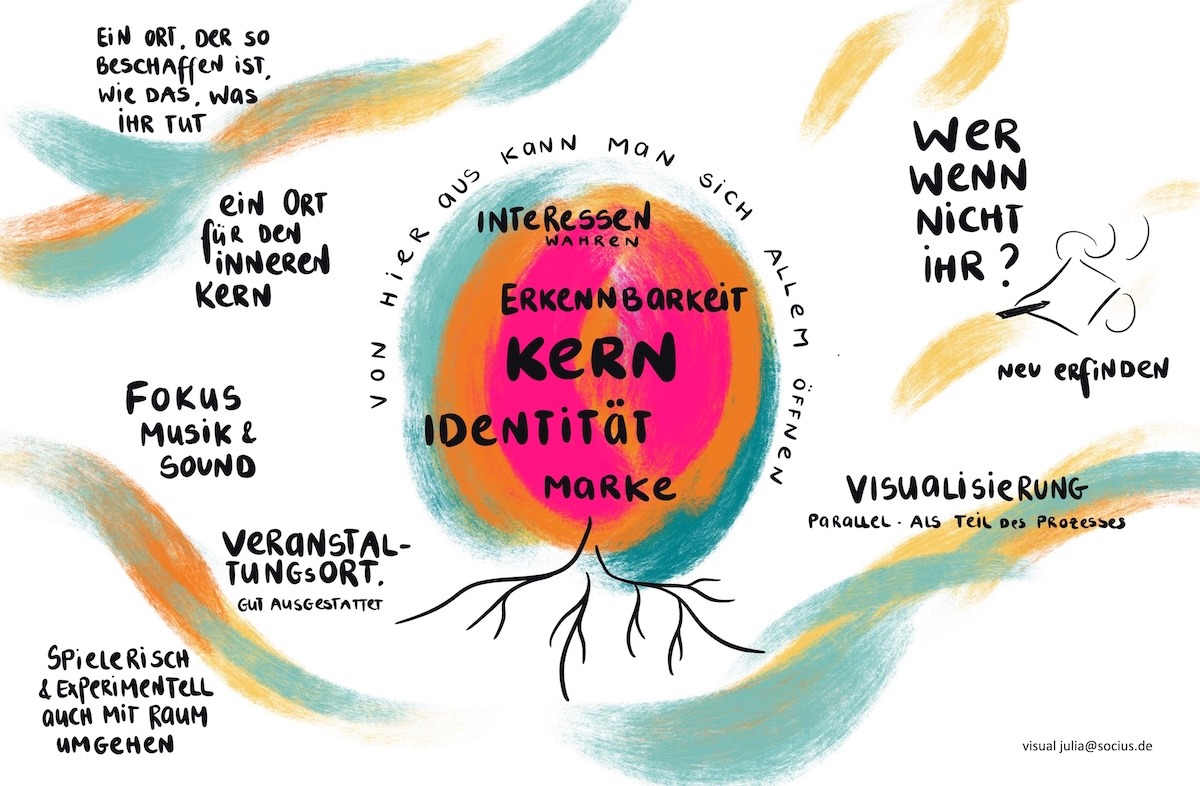 EiN ORT, DER SO
BESCHAffEN iST,
WiE DAS, WAS
iHR TUT
EiN ORT
füR DEN
iNNEREN
KERN
FOKUS
MUSiK &
SOUND
VERANSTAL-
TUNGSORT.
GUT AUSGESTATTET
SPiELERiSCH
& EXPERiMENTELL
AUCH MiT RAUM
UMGEHEN
VON HiER AUS KANN MAN SiCH ALLEM ÖFFNEN
INTERESSEN
WAHREN
ERKENNBARKEiT
KERN
IDENTiTÄT
MARKE
WER
WENN
NiCHT
iHR?
NEU ERfiNDEN
VISUALiSiERUNG
PARALLEL. ALS TEiL DES PROZESSES
visual julia@socius.de